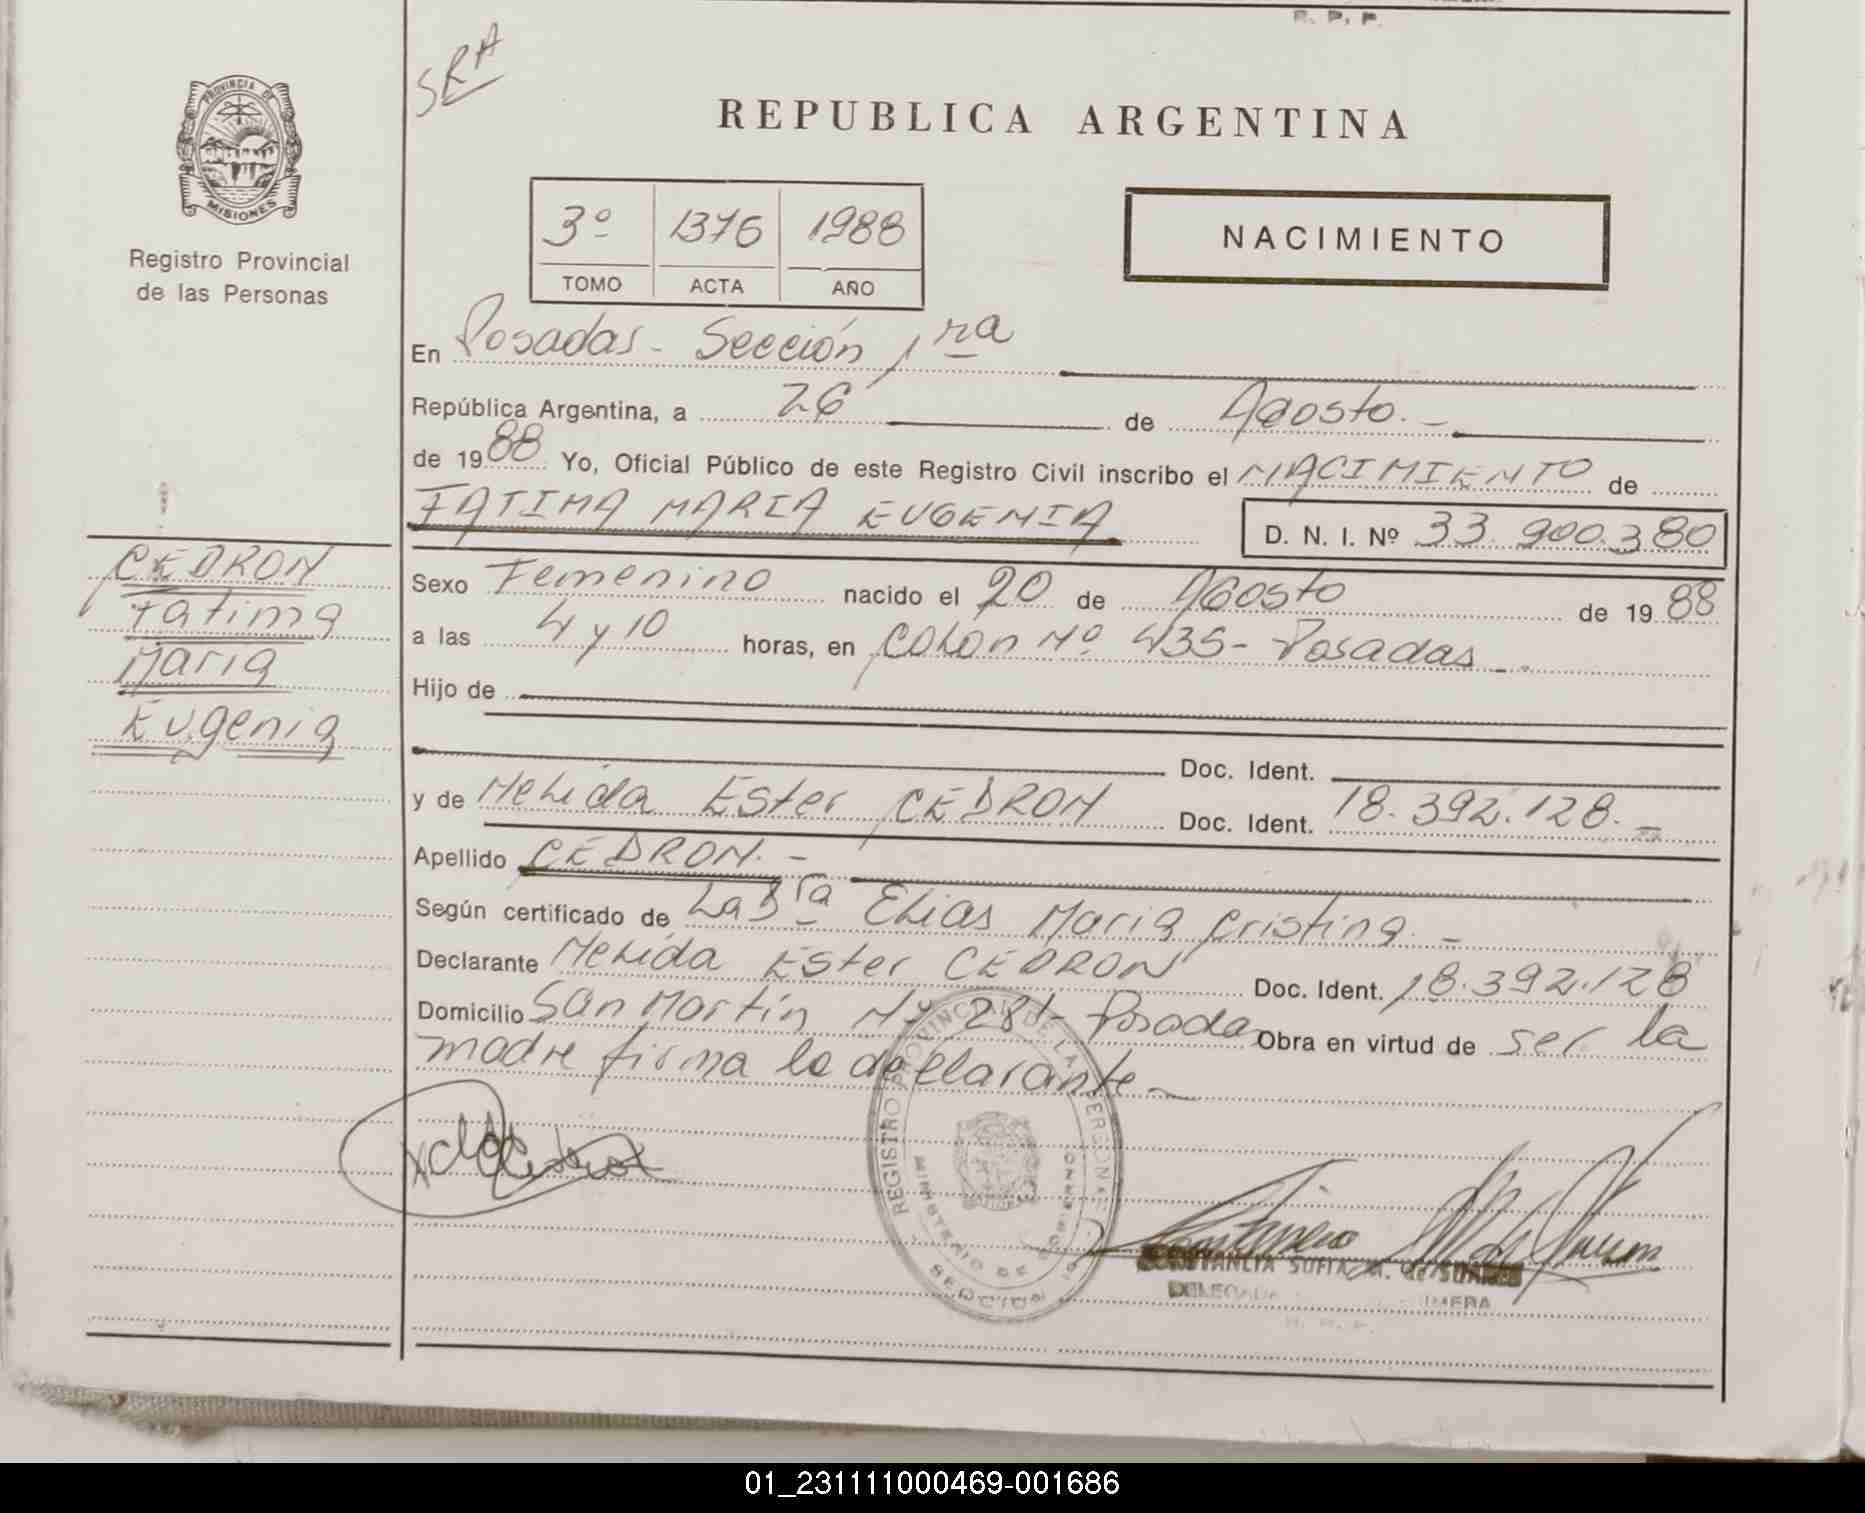 R. P. P.
SRA
PROVINCIA DE
MISIONES
Registro Provincial
de las Personas
REPUBLICA ARGENTINA
3º 1376 1988
TOMO ACTA AÑO
NACIMIENTO
En Posadas - Sección 1ra
República Argentina, a 26 de Agosto. -
de 1988 Yo, Oficial Público de este Registro Civil inscribo el NACIMIENTO de
FATIMA MARIA EUGENIA D. N. I. Nº 33.900.380
CEDRON
Fatima
Maria
Eugenia
Sexo Femenino nacido el 20 de Agosto de 1988
a las 4 y 10 horas, en Colon Nº 435 - Posadas -
Hijo de
Doc. Ident.
y de Melida Ester CEDRON Doc. Ident. 18.392.128. -
Apellido CEDRON. -
Según certificado de La Dra Elias Maria Cristina -
Declarante Melida Ester CEDRON Doc. Ident. 18.392.128
Domicilio San Martín Nº 281 - Posadas Obra en virtud de ser la
madre firma la declarante -
REGISTRO PROVINCIAL DE LAS PERSONAS
MINISTERIO DE GOBIERNO
SECCION
CONSTANCIA SOFIA M. de SUAREZ
DELEGADA
R. P. P.
01_231111000469-001686